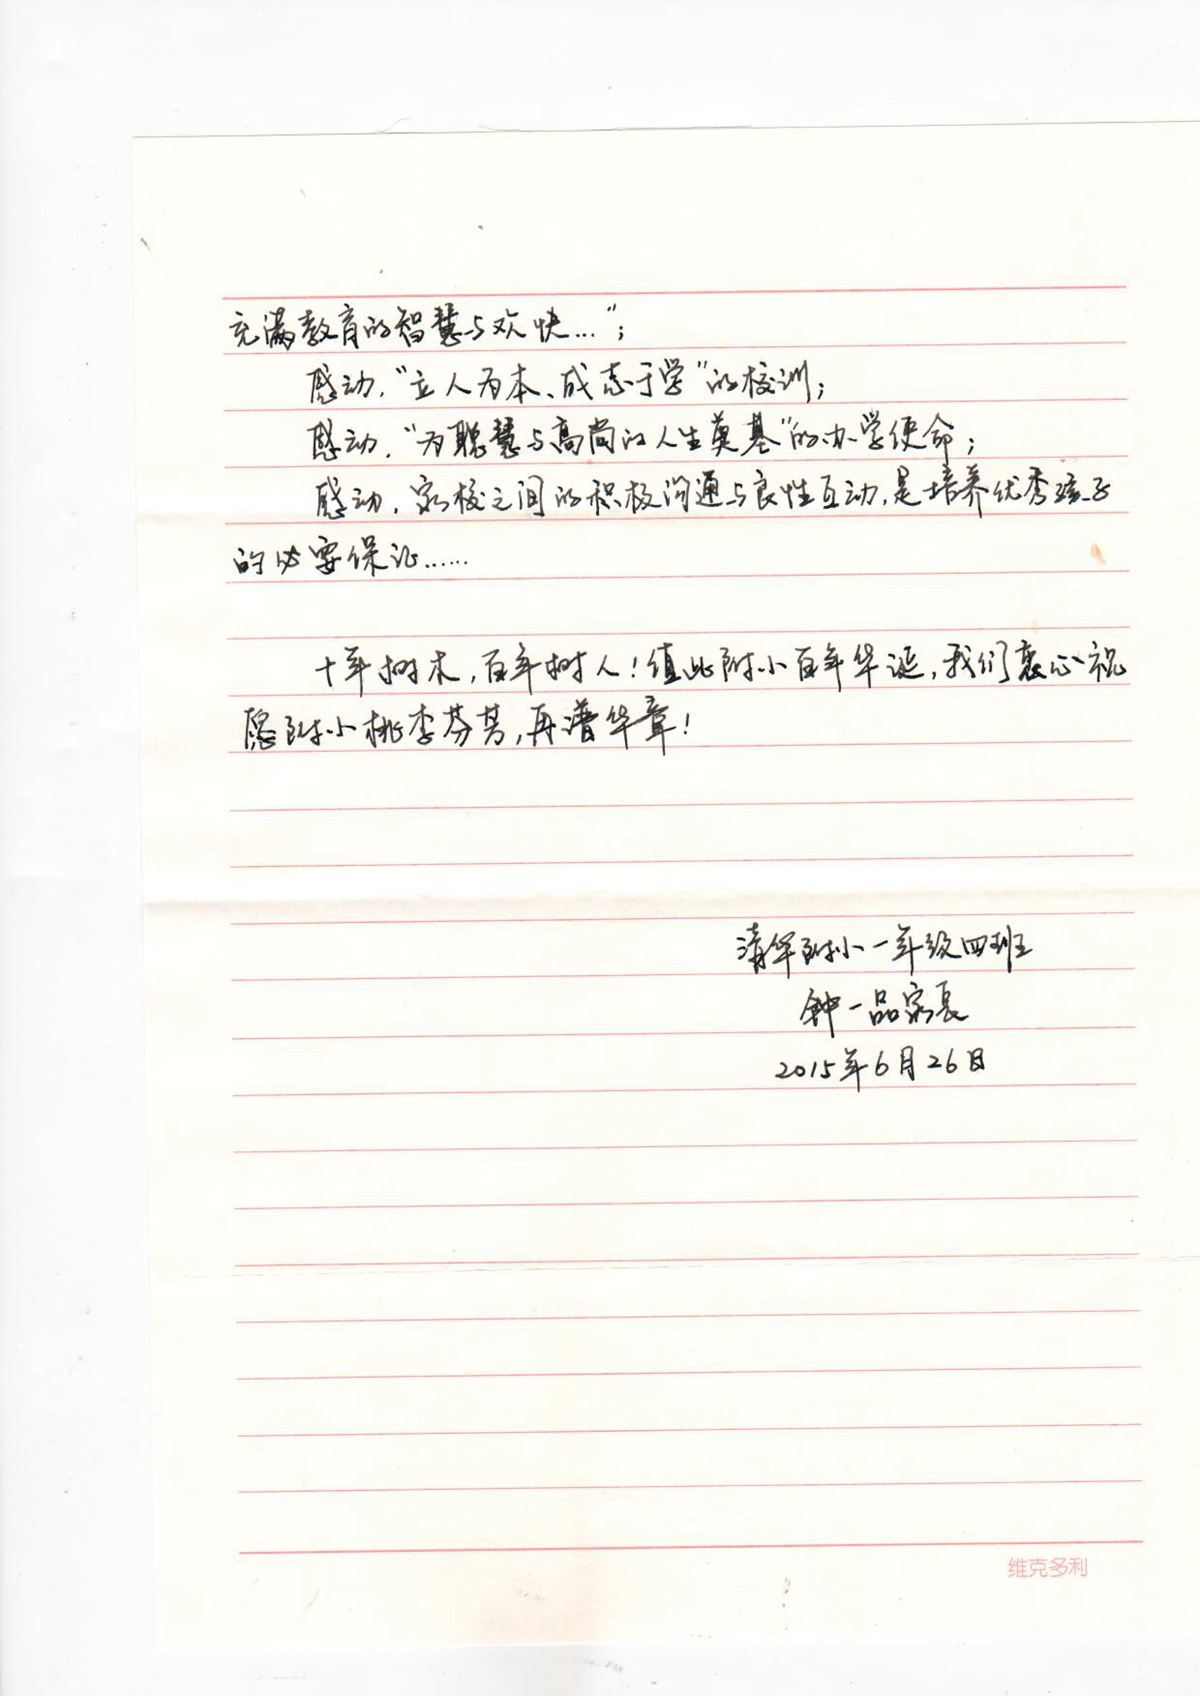 充满教育的智慧与欢快…";
感动,"立人为本、成志于学"的校训;
感动,"为聪慧与高尚的人生奠基"的办学使命;
感动,家校之间的积极沟通与良性互动,是培养优秀孩子
的必要保证……
十年树木,百年树人!值此附小百年华诞,我们衷心祝
愿附小桃李芬芳,再谱华章!
清华附小一年级四班
钟一品家长
2015年6月26日
维克多利